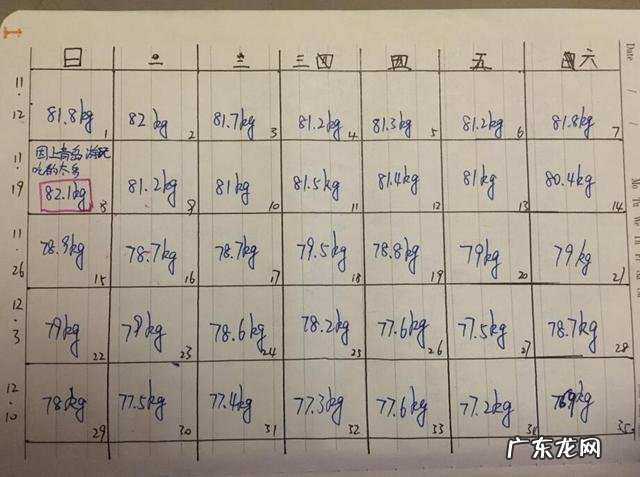 1
Date
日 一 二 三 四 五 六
11.12
81.8kg 1 82kg 2 81.7kg 3 81.2kg 4 81.3kg 5 81.2kg 6 81.8kg 7
11.19
因上青岛游玩
吃的太多
82.1kg 8 81.2kg 9 81kg 10 81.5kg 11 81.4kg 12 81kg 13 80.4kg 14
11.26
78.9kg 15 78.7kg 16 78.7kg 17 79.5kg 18 78.8kg 19 79kg 20 79kg 21
12.3
79kg 22 79kg 23 78.6kg 24 78.2kg 25 77.6kg 26 77.5kg 27 78.7kg 28
12.10
78kg 29 77.5kg 30 77.4kg 31 77.3kg 32 77.6kg 33 77.2kg 34 769kg 35
广东龙网